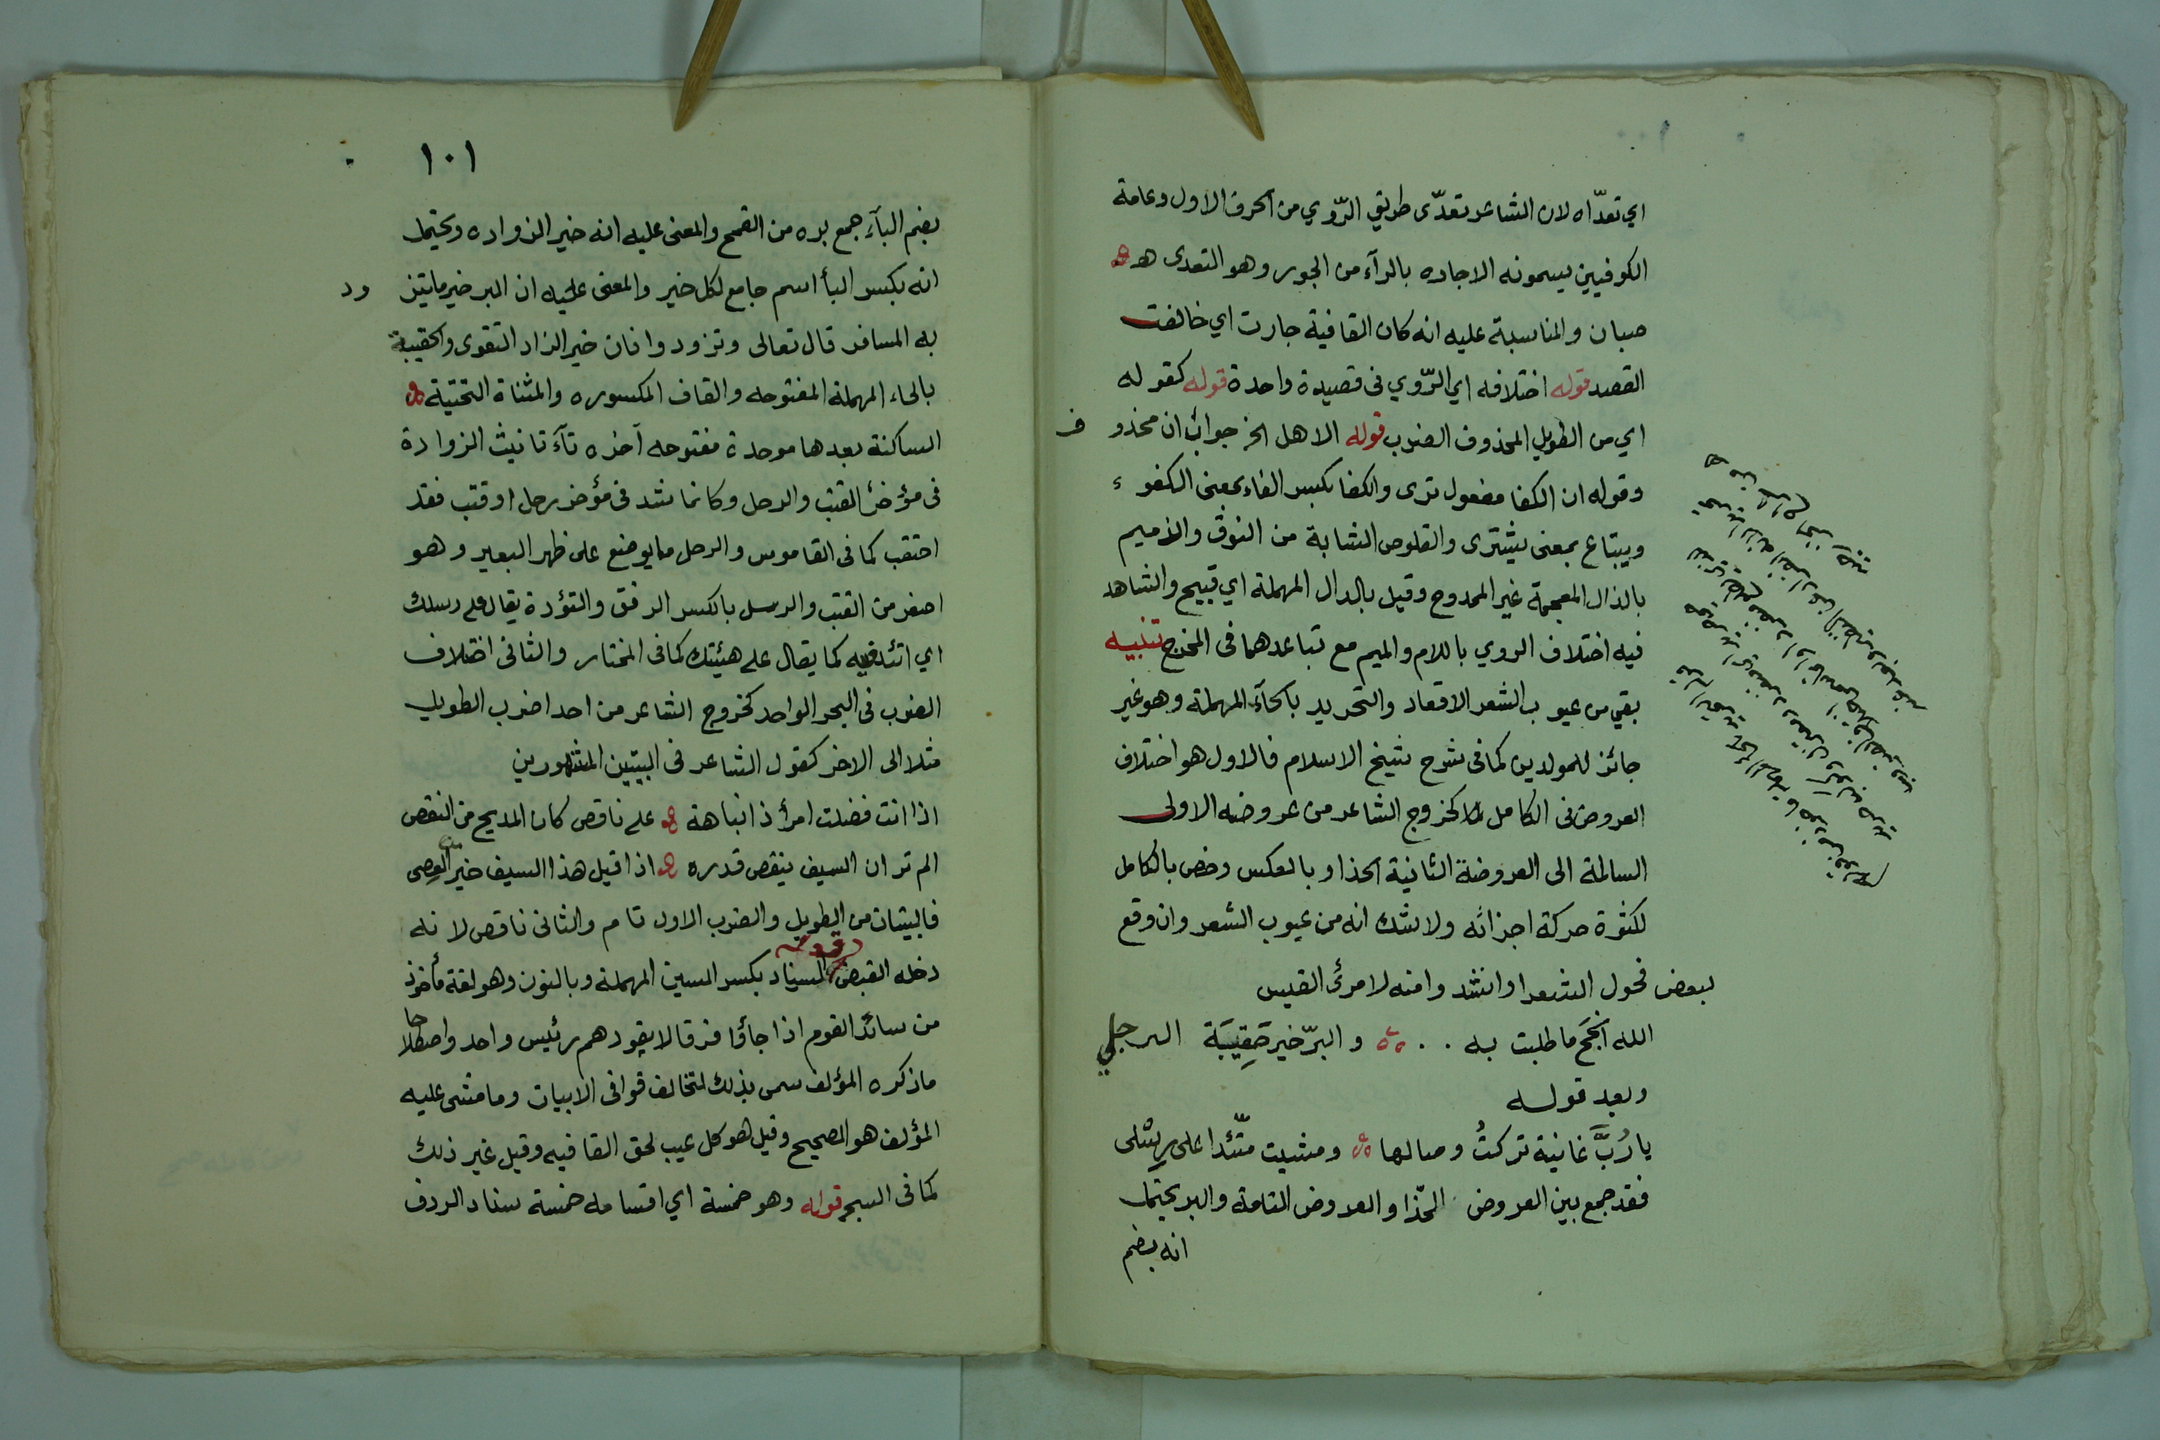 اي تعدّاه لان الشاعر تعدّى طريق الرّوي من الحرف الاول وعامة
الكوفيين يسمونه الاجاره بالرآء من الجور وهو التعدى هـ
صبان والمناسبة عليه انه كان القافية جارت اي خالفت
القصد قوله اختلافه اي الرّوي فى قصيدة واحدة قوله كقوله
اي من الطويل المحذوف الضرب قوله الاهل الخ جواب ان محذوف
وقوله ان الكفا مفعول ترى والكفا بكسر الفاء بمعنى الكفوء
ويبتاع بمعنى يشترى والقلوص الشابة من النوق والذميم
بالذال المعجمة غير الممدوح وقيل بالدال المهملة اي قبيح والشاهد
فيه اختلاف الروي باللام والميم مع تباعدهما فى المخرج تنبيه
بقي من عيوب الشعر الاقعاد والتحريد بالحآء المهملة وهو غير
جائز للمولدين كما فى شرح شيخ الاسلام فالاول هو اختلاف
العروض فى الكامل كخروج الشاعر من عروضه الاولى
السالمة الى العروضة الثانية الحذا وبالعكس وخص بالكامل
لكثرة حركة اجزائه ولا شك انه من عيوب الشعر وان وقع
لبعض فحول الشعرا وانشدوا منه لامرئ القيس
الله انجَح ما طلبت به .. والبرّ خير حَقِيبَة الرجل
وبعد قوله
يا رُبَّ غانية تركتُ وصالها ومشيت متّئدا على رِسْلى
فقد جمع بين العروض الحّذا والعروض التامة والبر يحتمل
انه بضم
١٠١
بضم البآء جمع بره من القمح والمعنى عليه انه خير الزواده ويحتمل
انه بكسر البأ اسم جامع لكل خير والمعنى عليه ان البر خير ما يتزود
به المسافر قال تعالى وتزودوا فان خير الزاد التقوى والحقيبة
بالحاء المهملة المفتوحه والقاف المكسوره والمثناة التحتية
الساكنة بعدها موحدة مفتوحه آخره تآء تانيث الزوادة
فى مؤخر القتب والرحل وكلما شد فى مؤخر رحل او قتب فقد
احتقب كما فى القاموس والرحل ما يوضع على ظهر البعير وهو
اصغر من القتب والرسل بالكسر الرفق والتؤدة يقال على رسلك
اي اتئد فيه كما يقال على هيئتك كما فى المختار والثانى اختلاف
الضرب فى البحر الواحد كخروج الشاعر من احد اضرب الطويل
مثلا الى الاخر كقول الشاعر فى البيتين المشهورين
اذا انت فضلت امرأ ذا نباهة على ناقص كان المديح من النقص
الم تر ان السيف ينقص قدره اذا قيل هذا السيف خير من العصى
فالبيتان من الطويل والضرب الاول تام والثانى ناقص لانه
دخله القبض قوله السناد بكسر السين المهملة وبالنون وهو لغة مأخوذ
من ساند القوم اذا جاؤا فرقا لا يقودهم رئيس واحد واصطلاحا
ما ذكره المؤلف سمى بذلك لتخالف قوافى الابيات وما مشى عليه
المؤلف هو الصحيح وقيل هو كل عيب لحق القافيه وقيل غير ذلك
كما فى السجـ قوله وهو خمسة اي اقسامه خمسة سناد الردف